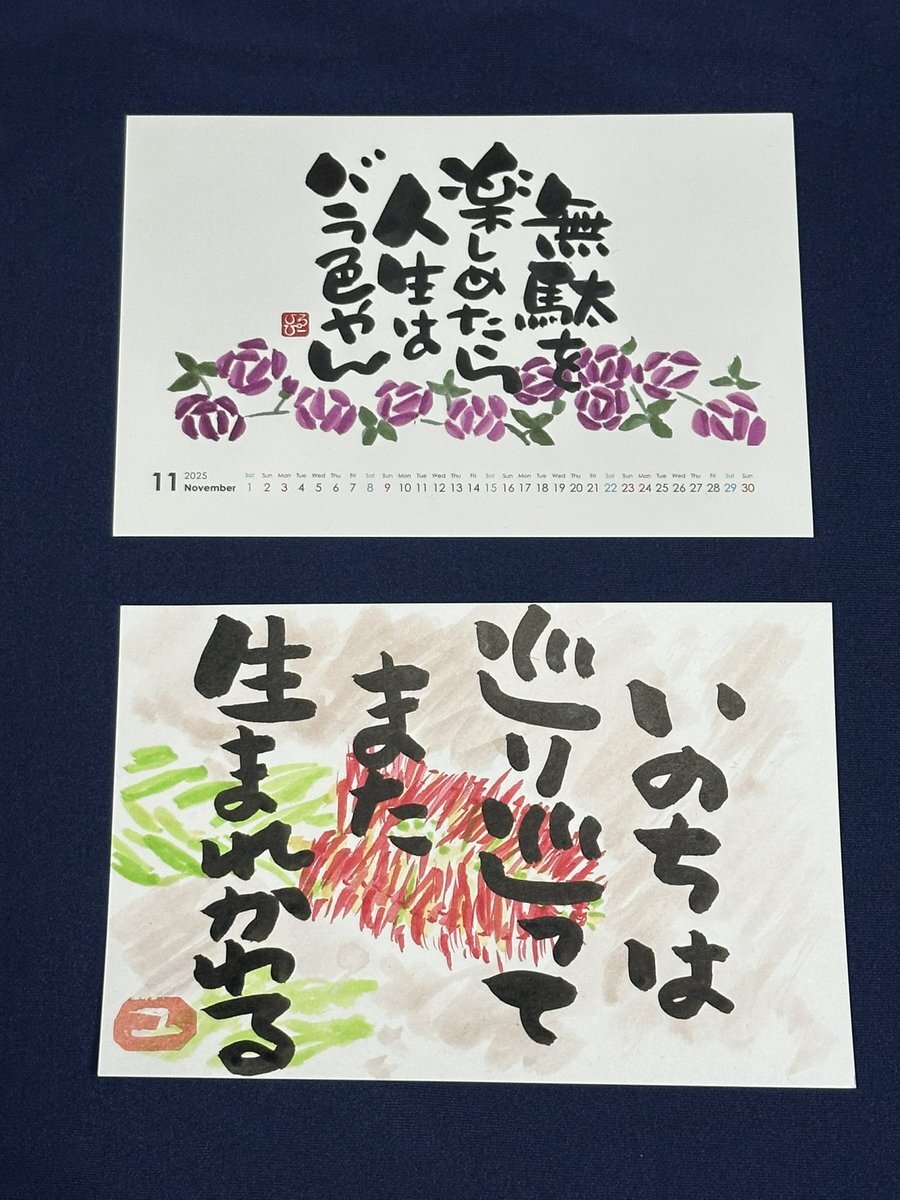 無駄を
楽しめたら
人生は
バラ色やん
ひろこ
11
2025
November
Sat Sun Mon Tue Wed Thu Fri Sat Sun Mon Tue Wed Thu Fri Sat Sun Mon Tue Wed Thu Fri Sat Sun Mon Tue Wed Thu Fri Sat Sun
1 2 3 4 5 6 7 8 9 10 11 12 13 14 15 16 17 18 19 20 21 22 23 24 25 26 27 28 29 30
いのちは
巡り巡って
また
生まれかわる
ユ